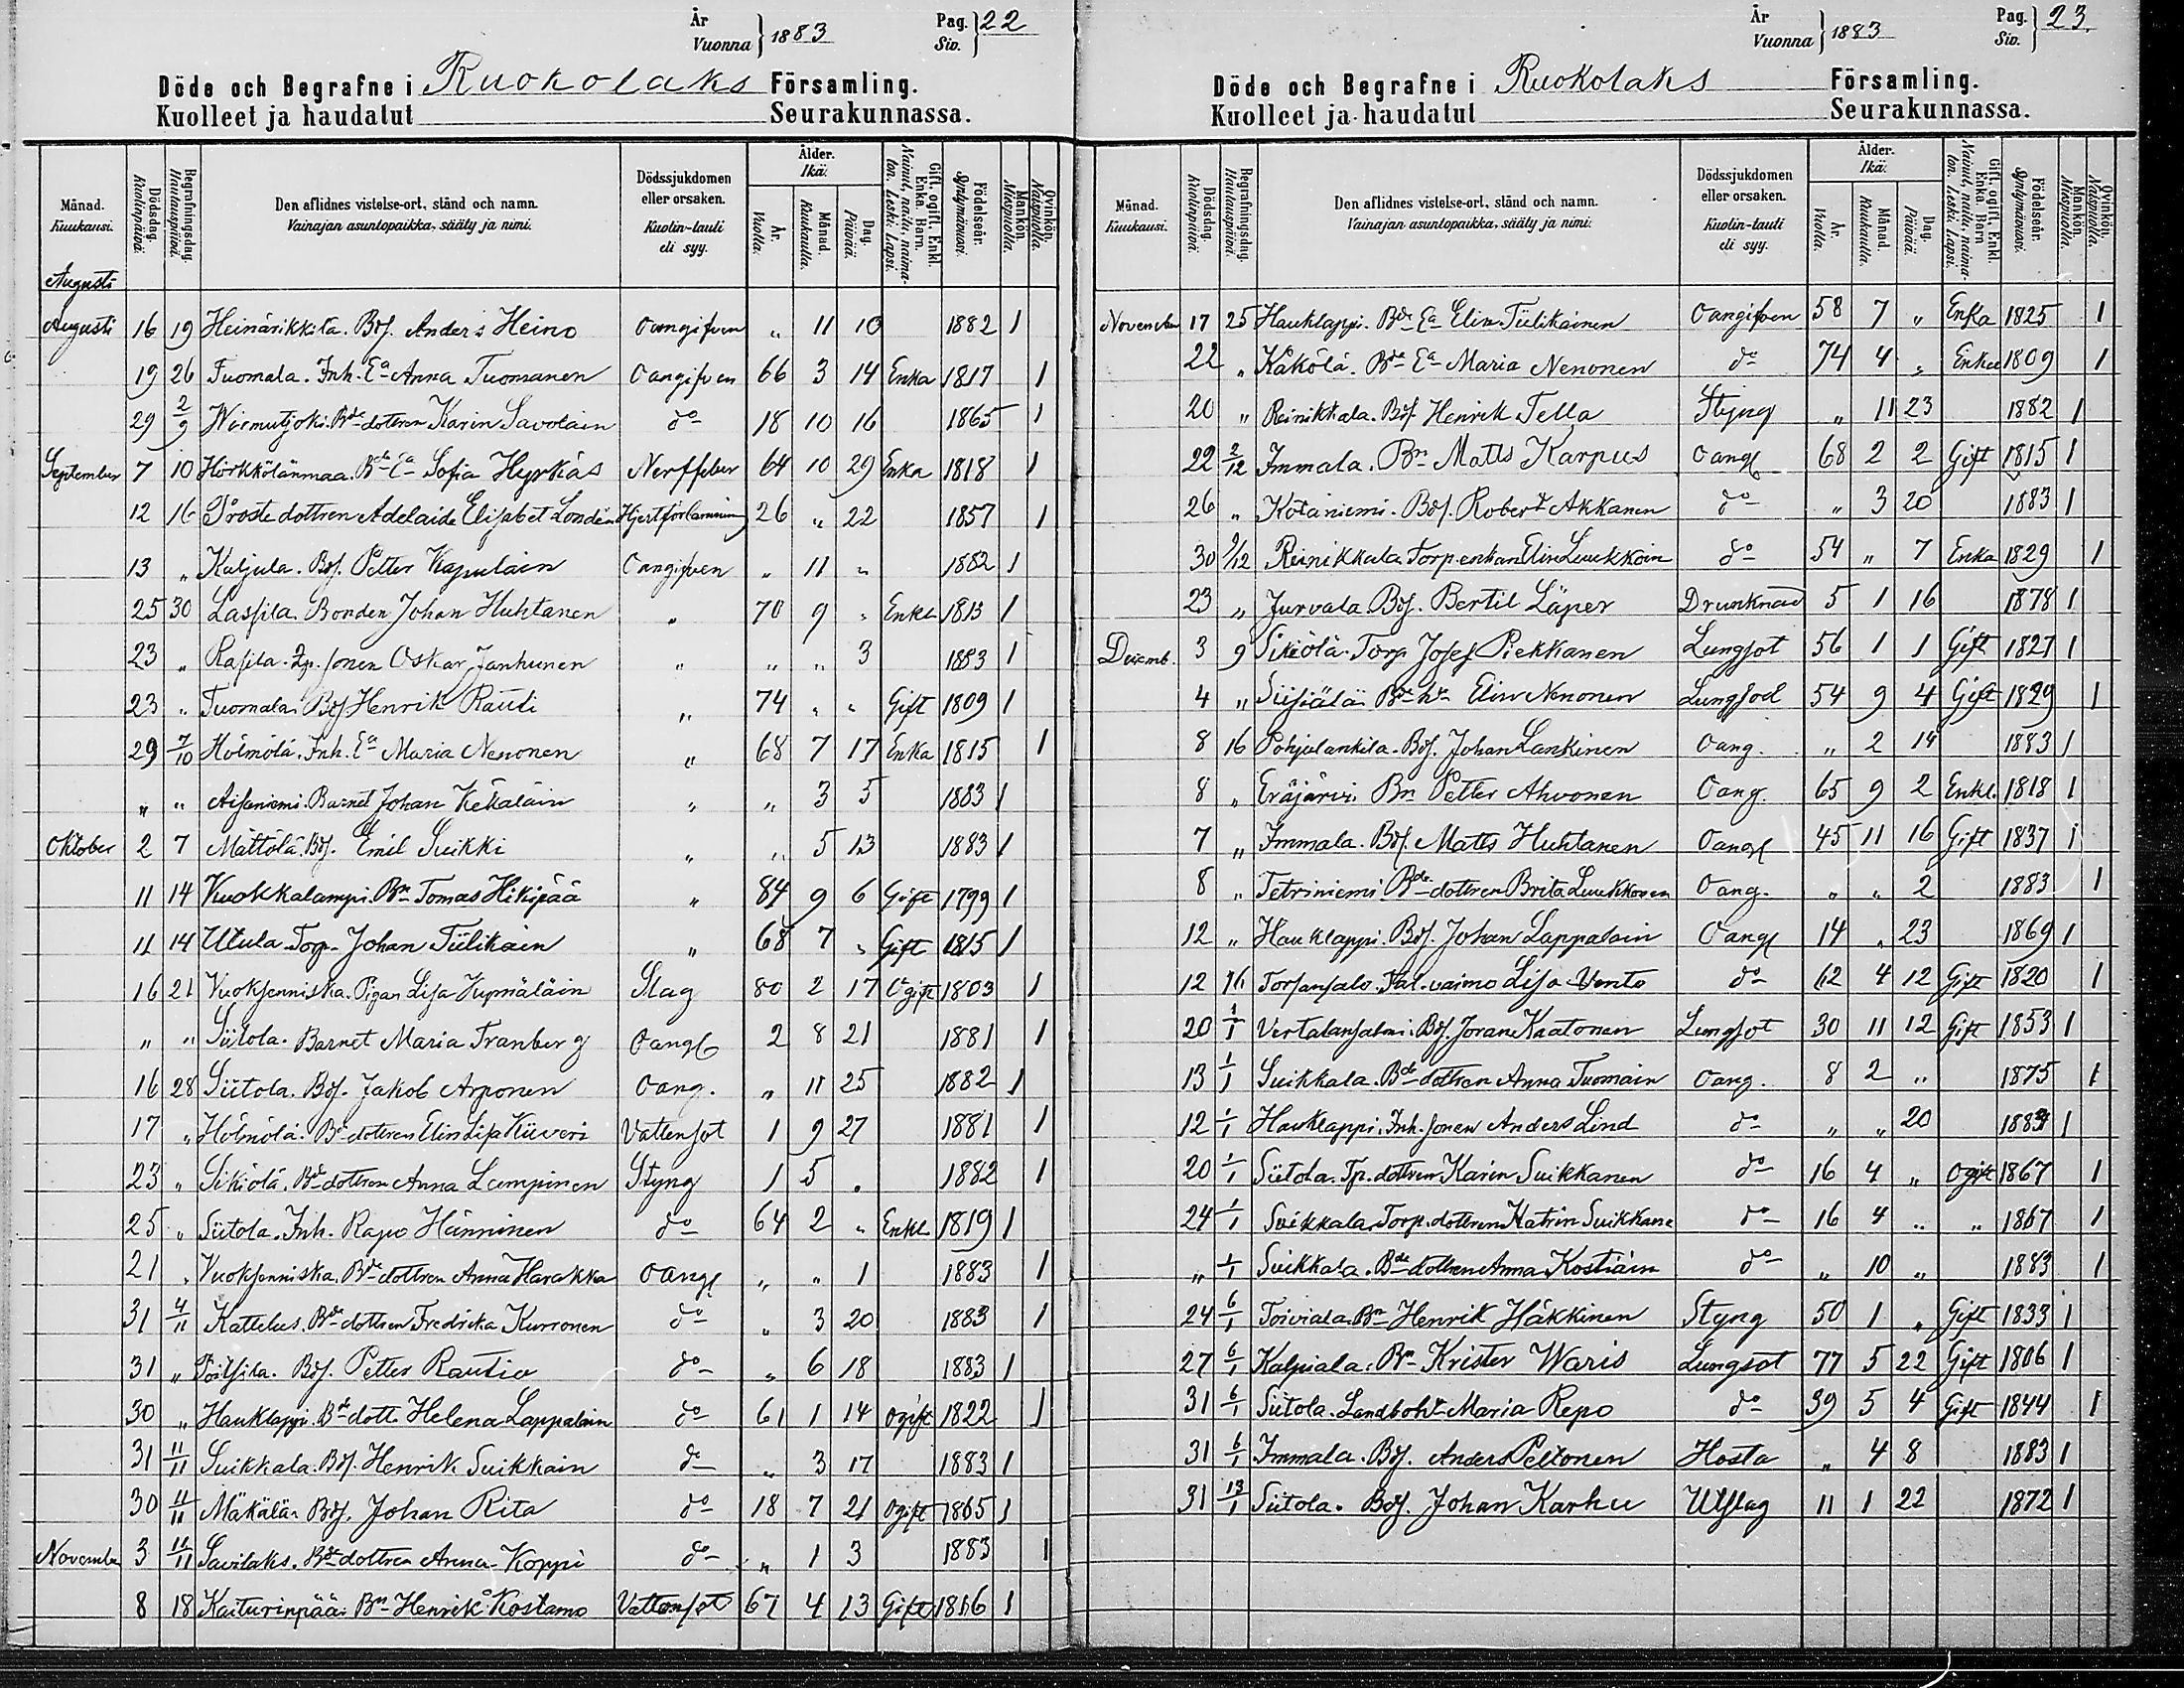 År Vuonna } 1883 Pag. Siv. } 22
Döde och Begrafne i Ruokolaks Församling.
Kuolleet ja haudatut Seurakunnassa.
Månad. Kuukausi. Dödsdag. Kuolinpäivä. Begrafningsdag. Hautauspäivä. Den aflidnes vistelse-ort, stånd och namn. Vainajan asuntopaikka, sääty ja nimi. Dödssjukdomen eller orsaken. Kuolin-tauti eli syy. Ålder. Ikä. År. Vuotta. Månad. Kuukautta. Dag. Päivää. Gift, ogift, Enkl. Enka, Barn. Nainut, naitu, naimaton, Leski, Lapsi. Födelseår. Syntymävuosi. Mankön. Miespuolia. Qvinkön. Naispuolia.
Augusti
Augusti 16 19 Heinärikkila. Bdf. Anders Heino Oangifven „ 11 10 1882 1
19 26 Tuomala. Inh. Ea Anna Tuomanen Oangifven 66 3 14 Enka 1817 1
29 2/9 Wirmutjoki. Bde dottren Karin Savolain do 18 10 16 1865 1
September 7 10 Härkkölänmaa. Bde Ea Sofia Hyrkäs Nerffeber 64 10 29 Enka 1818 1
12 16 Proste dottren Adelaide Elisabet Londén Hjertförlamning 26 „ 22 1857 1
13 „ Kuljula. Bdf. Petter Kapulain Oangifven „ 11 „ 1882 1
25 30 Lassila. Bonden Johan Huhtanen „ 70 9 „ Enkl 1813 1
23 „ Rasila. Tp. sonen Oskar Janhunen „ „ „ 3 1883 1
23 „ Tuomala. Bdf Henrik Rauti „ 74 „ „ Gift 1809 1
29 7/10 Hölmölä. Inh. Ea Maria Nenonen „ 68 7 17 Enka 1815 1
„ „ Aisaniemi. Barnet Johan Kekäläin „ „ 3 5 1883 1
Oktober 2 7 Mättölä. Bdf. Emil Suikki „ „ 5 13 1883 1
11 14 Vuokkalampi. Bn Tomas Hikipää „ 84 9 6 Gift 1799 1
11 14 Utula. Torp. Johan Tiilikain „ 68 7 „ Gift 1815 1
16 21 Vuoksenniska. Pigan Lisa Jupinäläin Slag 80 2 17 Ogift 1803 1
„ „ Siitola. Barnet Maria Tranberg Oangf 2 8 21 1881 1
16 28 Siitola. Bdf. Jakob Arponen Oang. „ 11 25 1882 1
17 „ Hölmölä. Bde dottren Elin Lisa Kiiveri Vattensot 1 9 27 1881 1
23 „ Sikiölä. Bde dottren Anna Lempinen Styng 1 5 „ 1882 1
25 „ Siitola. Inh. Rapo Hänninen do 64 2 „ Enkl 1819 1
21 „ Vuoksenniska. Bde dottren Anna Harakka Oangf „ „ 1 1883 1
31 4/11 Kattelus. Bde dottren Fredrika Kurronen do „ 3 20 1883 1
31 „ Poitsila. Bdf. Petter Rautio do „ 6 18 1883 1
30 „ Hauklappi. Bde dott. Helena Lappalain do 61 1 14 Ogift 1822 1
31 11/11 Suikkala. Bdf. Henrik Suikkain do „ 3 17 1883 1
30 11/11 Mäkälä. Bdf. Johan Rita do 18 7 21 Ogift 1865 1
November 3 11/11 Savilaks. Bde dottren Anna Koppi do „ 1 3 1883 1
8 18 Kaiturinpää. Bn Henrik Kostamo Vattensot 67 4 13 Gift 1816 1
År Vuonna } 1883 Pag. Siv. } 23.
Döde och Begrafne i Ruokolaks Församling.
Kuolleet ja haudatut Seurakunnassa.
Månad. Kuukausi. Dödsdag. Kuolinpäivä. Begrafningsdag. Hautauspäivä. Den aflidnes vistelse-ort, stånd och namn. Vainajan asuntopaikka, sääty ja nimi. Dödssjukdomen eller orsaken. Kuolin-tauti eli syy. Ålder. Ikä. År. Vuotta. Månad. Kuukautta. Dag. Päivää. Gift, ogift, Enkl. Enka, Barn. Nainut, naitu, naimaton, Leski, Lapsi. Födelseår. Syntymävuosi. Mankön. Miespuolia. Qvinkön. Naispuolia.
November 17 25 Hauklappi. Bde Ea Elin Tiilikainen Oangifven 58 7 „ Enka 1825 1
22 „ Käkölä. Bde Ea Maria Nenonen do 74 4 „ Enka 1809 1
20 „ Reinikkala. Bdf. Henrik Tella Styng „ 11 23 1882 1
22 2/12 Immala. Bn Matts Karpus Oangf 68 2 2 Gift 1815 1
26 „ Kotaniemi. Bdf. Robert Akkanen do „ 3 20 1883 1
30 9/12 Reinikkala Torp.enkan Elin Luukkoin do 54 „ 7 Enka 1829 1
23 „ Jurvala Bdf. Bertil Läper Drunknad 5 1 16 1878 1
Decemb. 3 9 Sikiölä. Torp Josef Piekkanen Lungsot 56 1 1 Gift 1827 1
4 „ Siisiälä Bde h Elin Nenonen Lungsot 54 9 4 Gift 1829 1
8 16 Pohjalankila. Bdf. Johan Lankinen Oang. „ 2 14 1883 1
8 „ Eräjärvi. Bn Petter Ahvonen Oang. 65 9 2 Enkl. 1818 1
7 „ Immala. Bdf. Matts Huhtanen Oangf 45 11 16 Gift 1837 1
8 „ Tetriniemi Bde dottren Brita Luukkonen Oang. „ „ 2 1883 1
12 „ Hauklappi. Bdf. Johan Lappalain Oangf 14 „ 23 1869 1
12 16 Torsansalo. Tal.vaimo Lisa Vento do 62 4 12 Gift 1820 1
20 1/1 Vertalansalmi. Bdf. Joran Kaatonen Lungsot 30 11 12 Gift 1853 1
13 1/1 Suikkala. Bde dottren Anna Tuomain Oang. 8 2 „ 1875 1
12 1/1 Hauklappi. Inh. sonen Anders Lind do „ „ 20 1883 1
20 1/1 Siitola. Tp. dottren Karin Suikkanen do 16 4 „ Ogift 1867 1
24 1/1 Suikkala. Torp. dottren Katrin Suikkane do 16 4 „ „ 1867 1
„ 1/1 Suikkala. Bde dottren Anna Kostiain do „ 10 „ 1883 1
24 6/1 Toiviala. Bn Henrik Häkkinen Styng 50 1 „ Gift 1833 1
27 6/1 Kalpiala. Bn Krister Waris Lungsot 77 5 22 Gift 1806 1
31 6/1 Siitola. Landboh Maria Repo do 39 5 4 Gift 1844 1
31 6/1 Immala. Bdf. Anders Peltonen Hosta „ 4 8 1883 1
31 13/1 Siitola. Bdf. Johan Karhu Utslag 11 1 22 1872 1